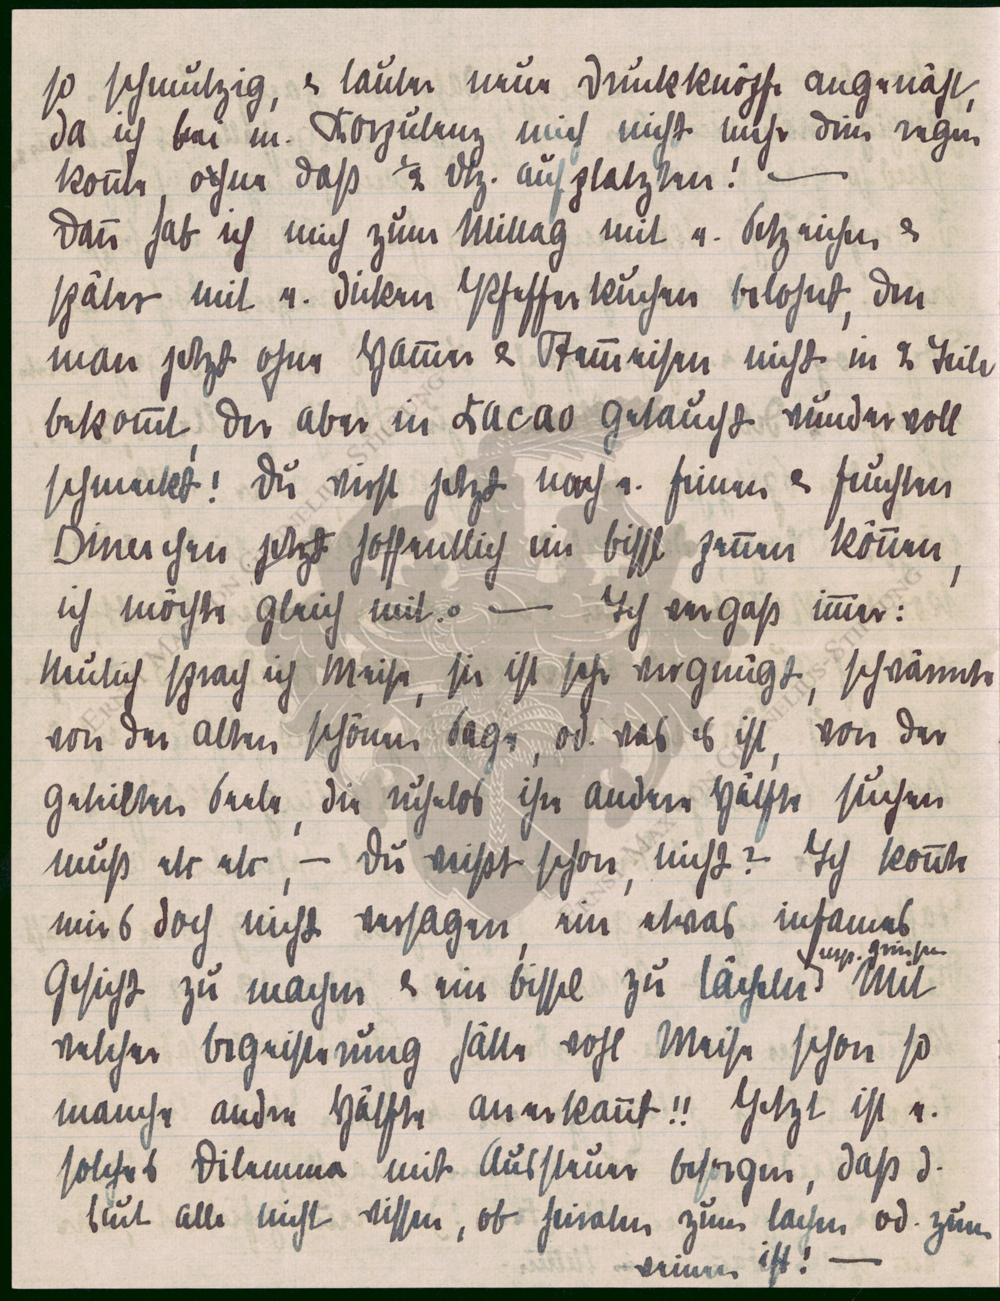 so schmutzig, & lauter neue Druckknöpfe angenäht,
da ich bei m. Korpulenz mich nicht mehr drin regen
konnte, ohne daß ½ Dtz. aufplatzten! —
Dañ hab ich mich zum Mittag mit e. &
später mit e. dicken Pfefferkuchen belohnt, den
man jetzt ohne Ham̄er & Stem̄eisen nicht in 2 Teile
bekom̄t, der aber in Kacao getaucht wundervoll
schmeckt! Du wirst jetzt nach e. feinen & feuchten
Dinerchen jetzt hoffentlich ein bissl peñen köñen,
ich möchte gleich mit. — Ich vergaß im̄er:
Neulich sprach ich Meise, sie ist sehr vergnügt, schwärmte
von der alten schönen Sage, od. was es ist, von der
geteilten Seele, die ruhelos ihre andere Hälfte suchen
muß etc etc, — Du weißt schon, nicht? Ich koñte
mirs doch nicht versagen, ein etwas infames
Gesicht zu machen & ein bissel zu lächeln resp. grinsen Mit
welcher Begeisterung hätte wohl Meise schon so
manche andre Hälfte anerkañt!! Jetzt ist e.
solches Dilemma mit Aussteuer besorgen, daß d.
Leut alle nicht wissen, ob heiraten zum lachen od. zum
weinen ist! —